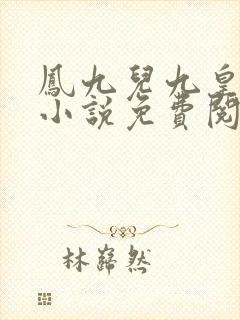 鳳九兒九皇
小說免費閱
林巋然